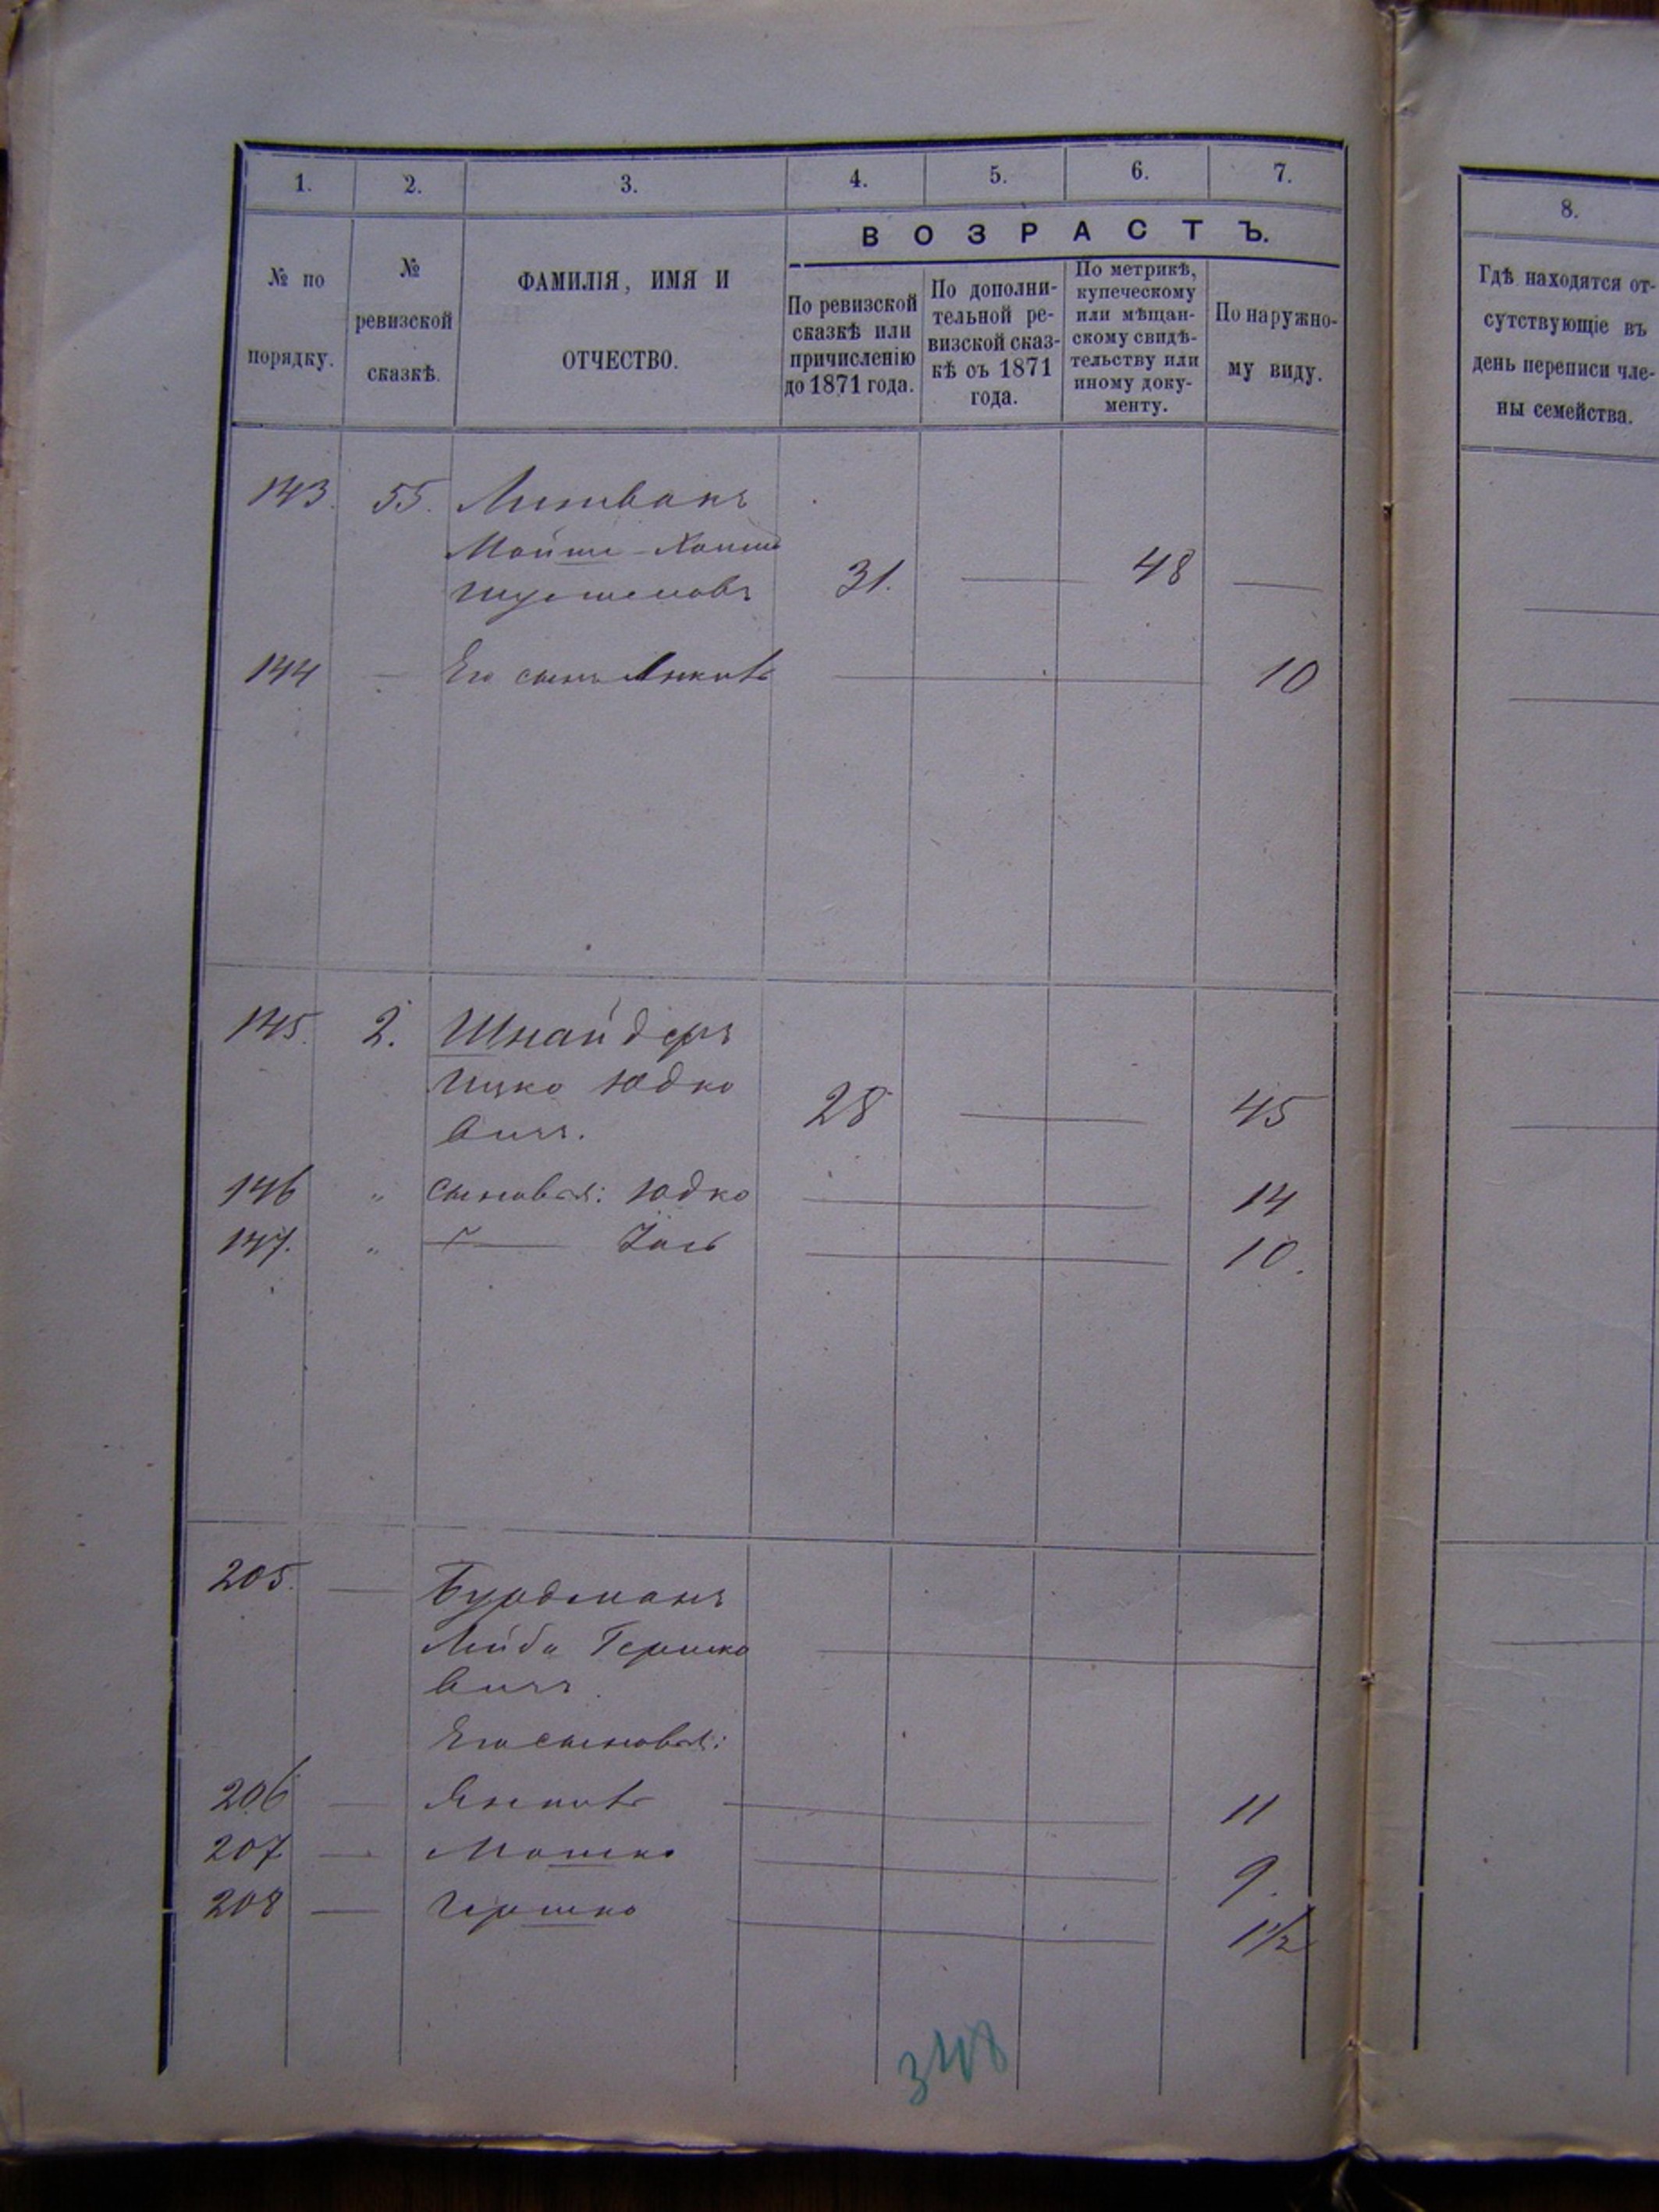 1. 2. 3. 4. 5. 6. 7.
ВОЗРАСТЪ.
№ по порядку.
№ ревизской сказкѣ.
ФАМИЛІЯ, ИМЯ И ОТЧЕСТВО.
По ревизской сказкѣ или причисленію до 1871 года.
По дополнительной ревизской сказкѣ съ 1871 года.
По метрикѣ, купеческому или мѣщанскому свидѣтельству или иному документу.
По наружному виду.
8.
Гдѣ находятся отсутствующіе въ день переписи члены семейства.
143. 55. Литвакъ
Мойше-
31. — 48 —
144 — Его сынъ Янкель — 10
145. 2. Шнайдеръ
Ицко Юдко
вичъ. 28 — 45
146 " Сыновья: Юдко — 14
147. " — — 10.
205. — Бурдманъ
Лейба Гершко
вичъ.
Его сыновья:
206 — Янкель — 11
207 — Мошко — 9.
208 — Гершко — 1 1/2
348